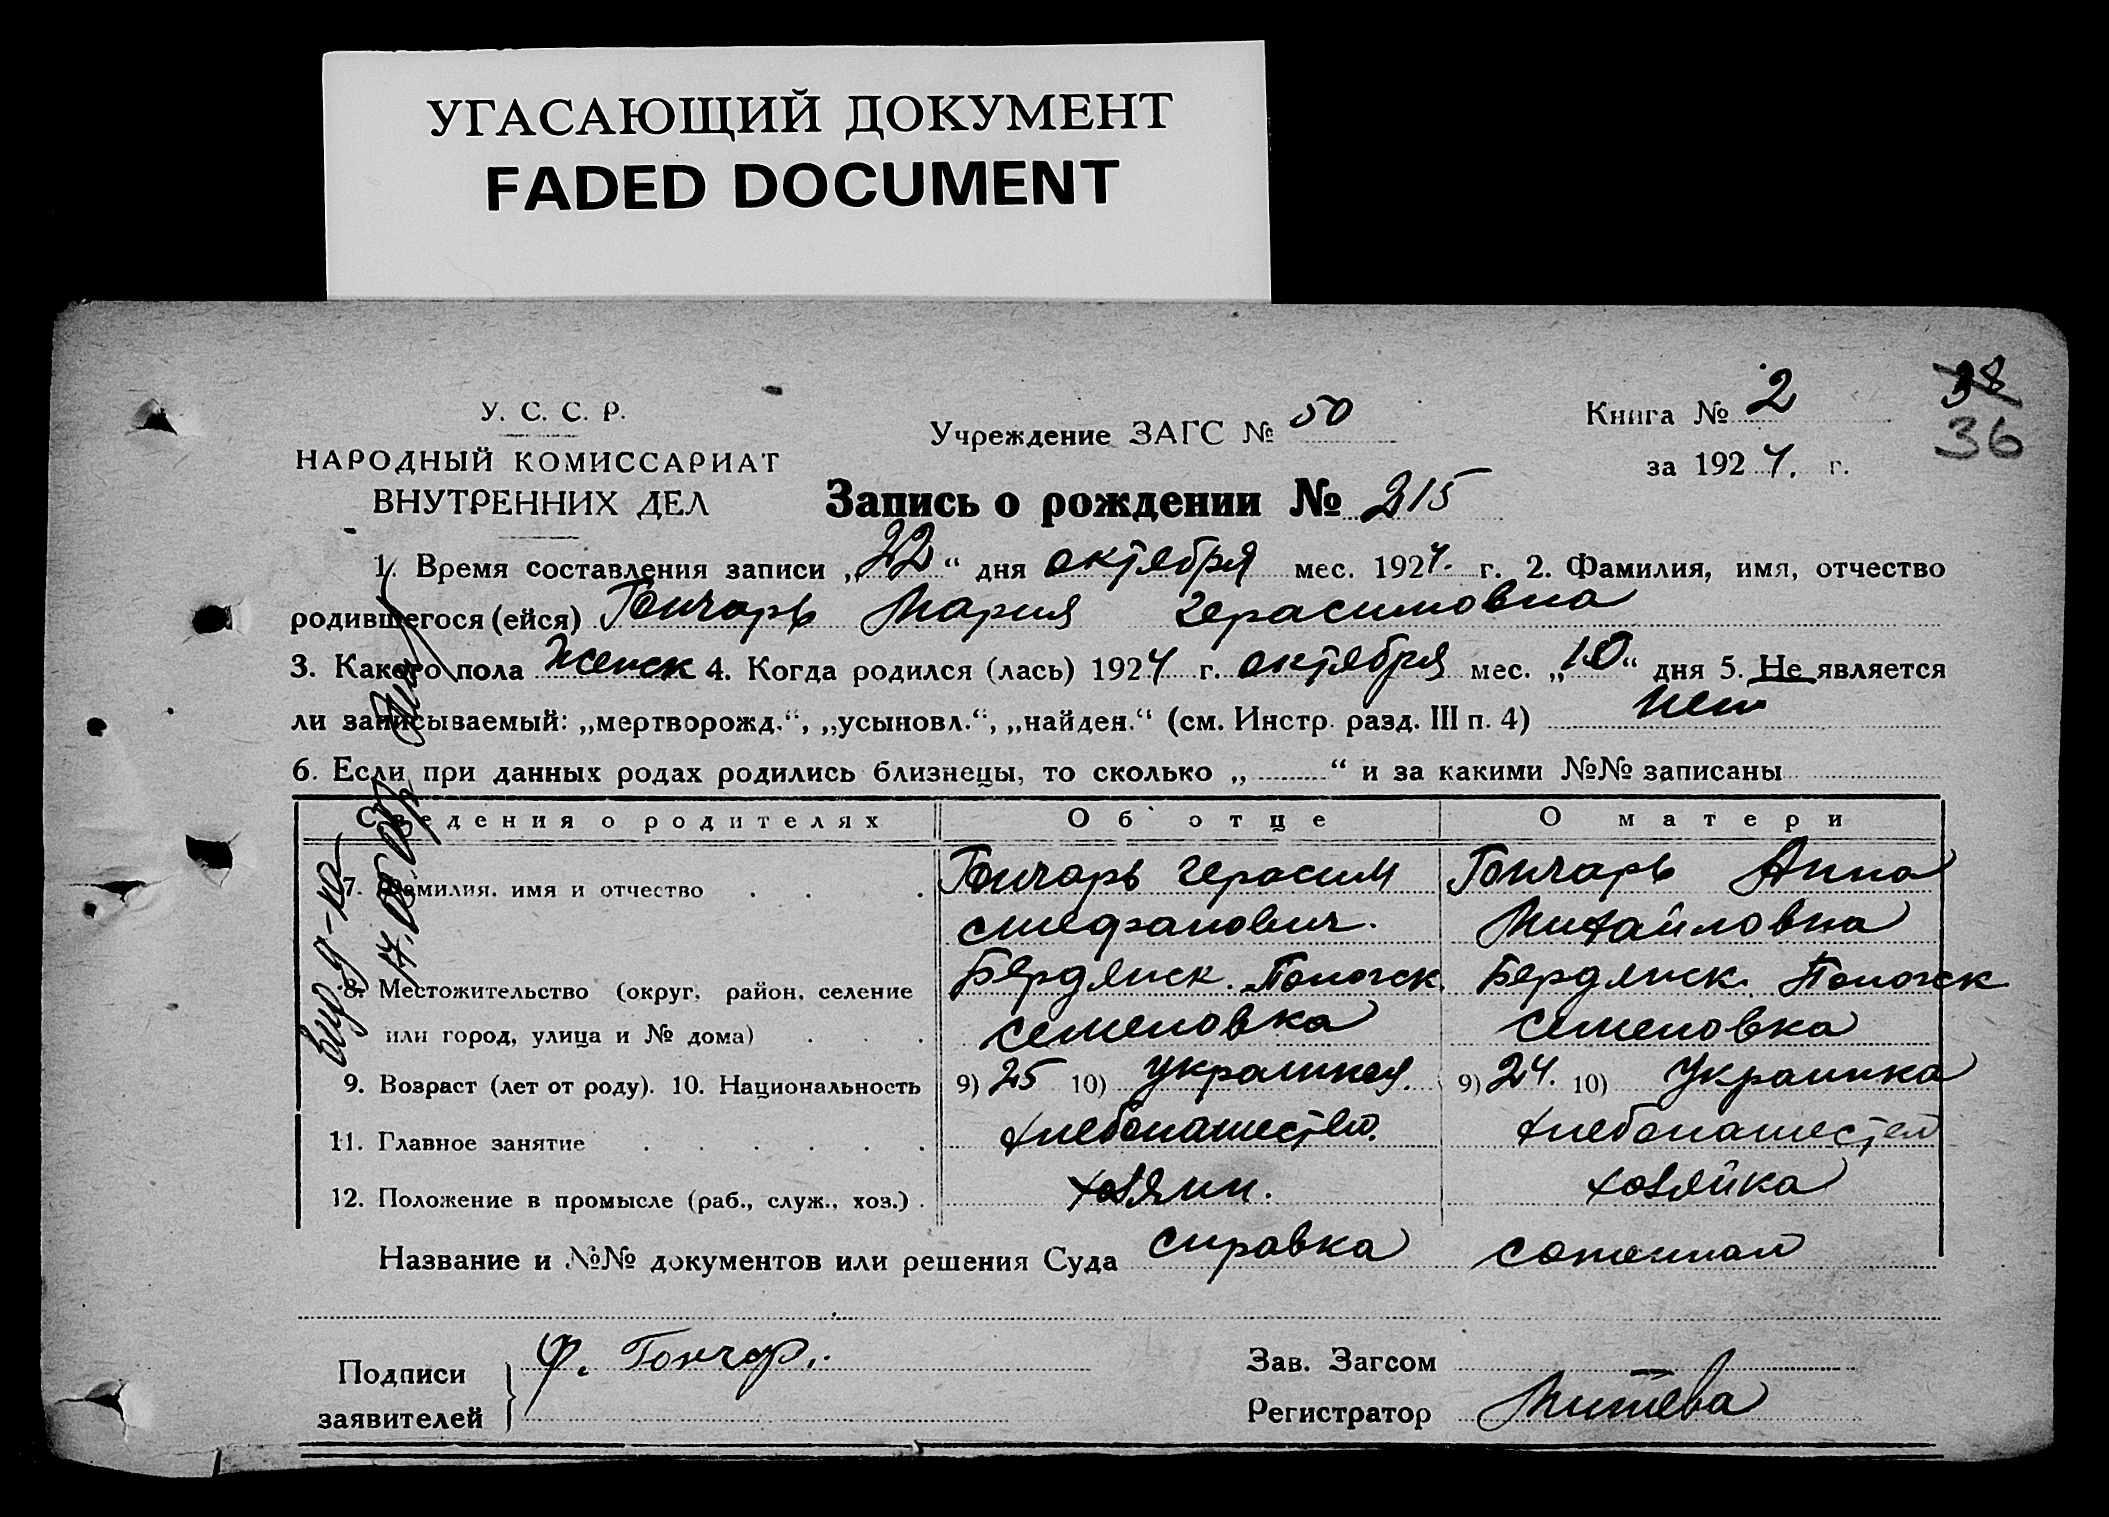 УГАСАЮЩИЙ ДОКУМЕНТ
FADED DOCUMENT
38
36
У. С. С. Р.
НАРОДНЫЙ КОМИССАРИАТ
ВНУТРЕННИХ ДЕЛ
Учреждение ЗАГС № 50
Книга № 2
за 1924. г.
Запись о рождении № 215
1. Время составления записи „22“ дня октября мес. 1924. г. 2. Фамилия, имя, отчество
родившегося (ейся) Гончарь Мария Герасимовна
3. Какого пола женск 4. Когда родился (лась) 1924 г. октября мес. „10“ дня 5. Не является
ли записываемый: „мертворожд.“, „усыновл.“, „найден.“ (см. Инстр. разд. III п. 4) нет
6. Если при данных родах родились близнецы, то сколько „ “ и за какими №№ записаны
Сведения о родителях Об отце О матери
7. Фамилия, имя и отчество Гончарь Герасим Гончарь Анна
Стефанович. Михайловна
8. Местожительство (округ, район, селение Бердянск. Пологск. Бердянск. Пологск
или город, улица и № дома) Семеновка Семеновка
9. Возраст (лет от роду). 10. Национальность 9) 25 10) 9) 24. 10) Украинка
11. Главное занятие хлебопашество. хлебопашество
12. Положение в промысле (раб., служ., хоз.) хозяин. хозяйка
Название и №№ документов или решения Суда справка
Подписи
заявителей
Ф. Гончар.
Зав. Загсом
Регистратор